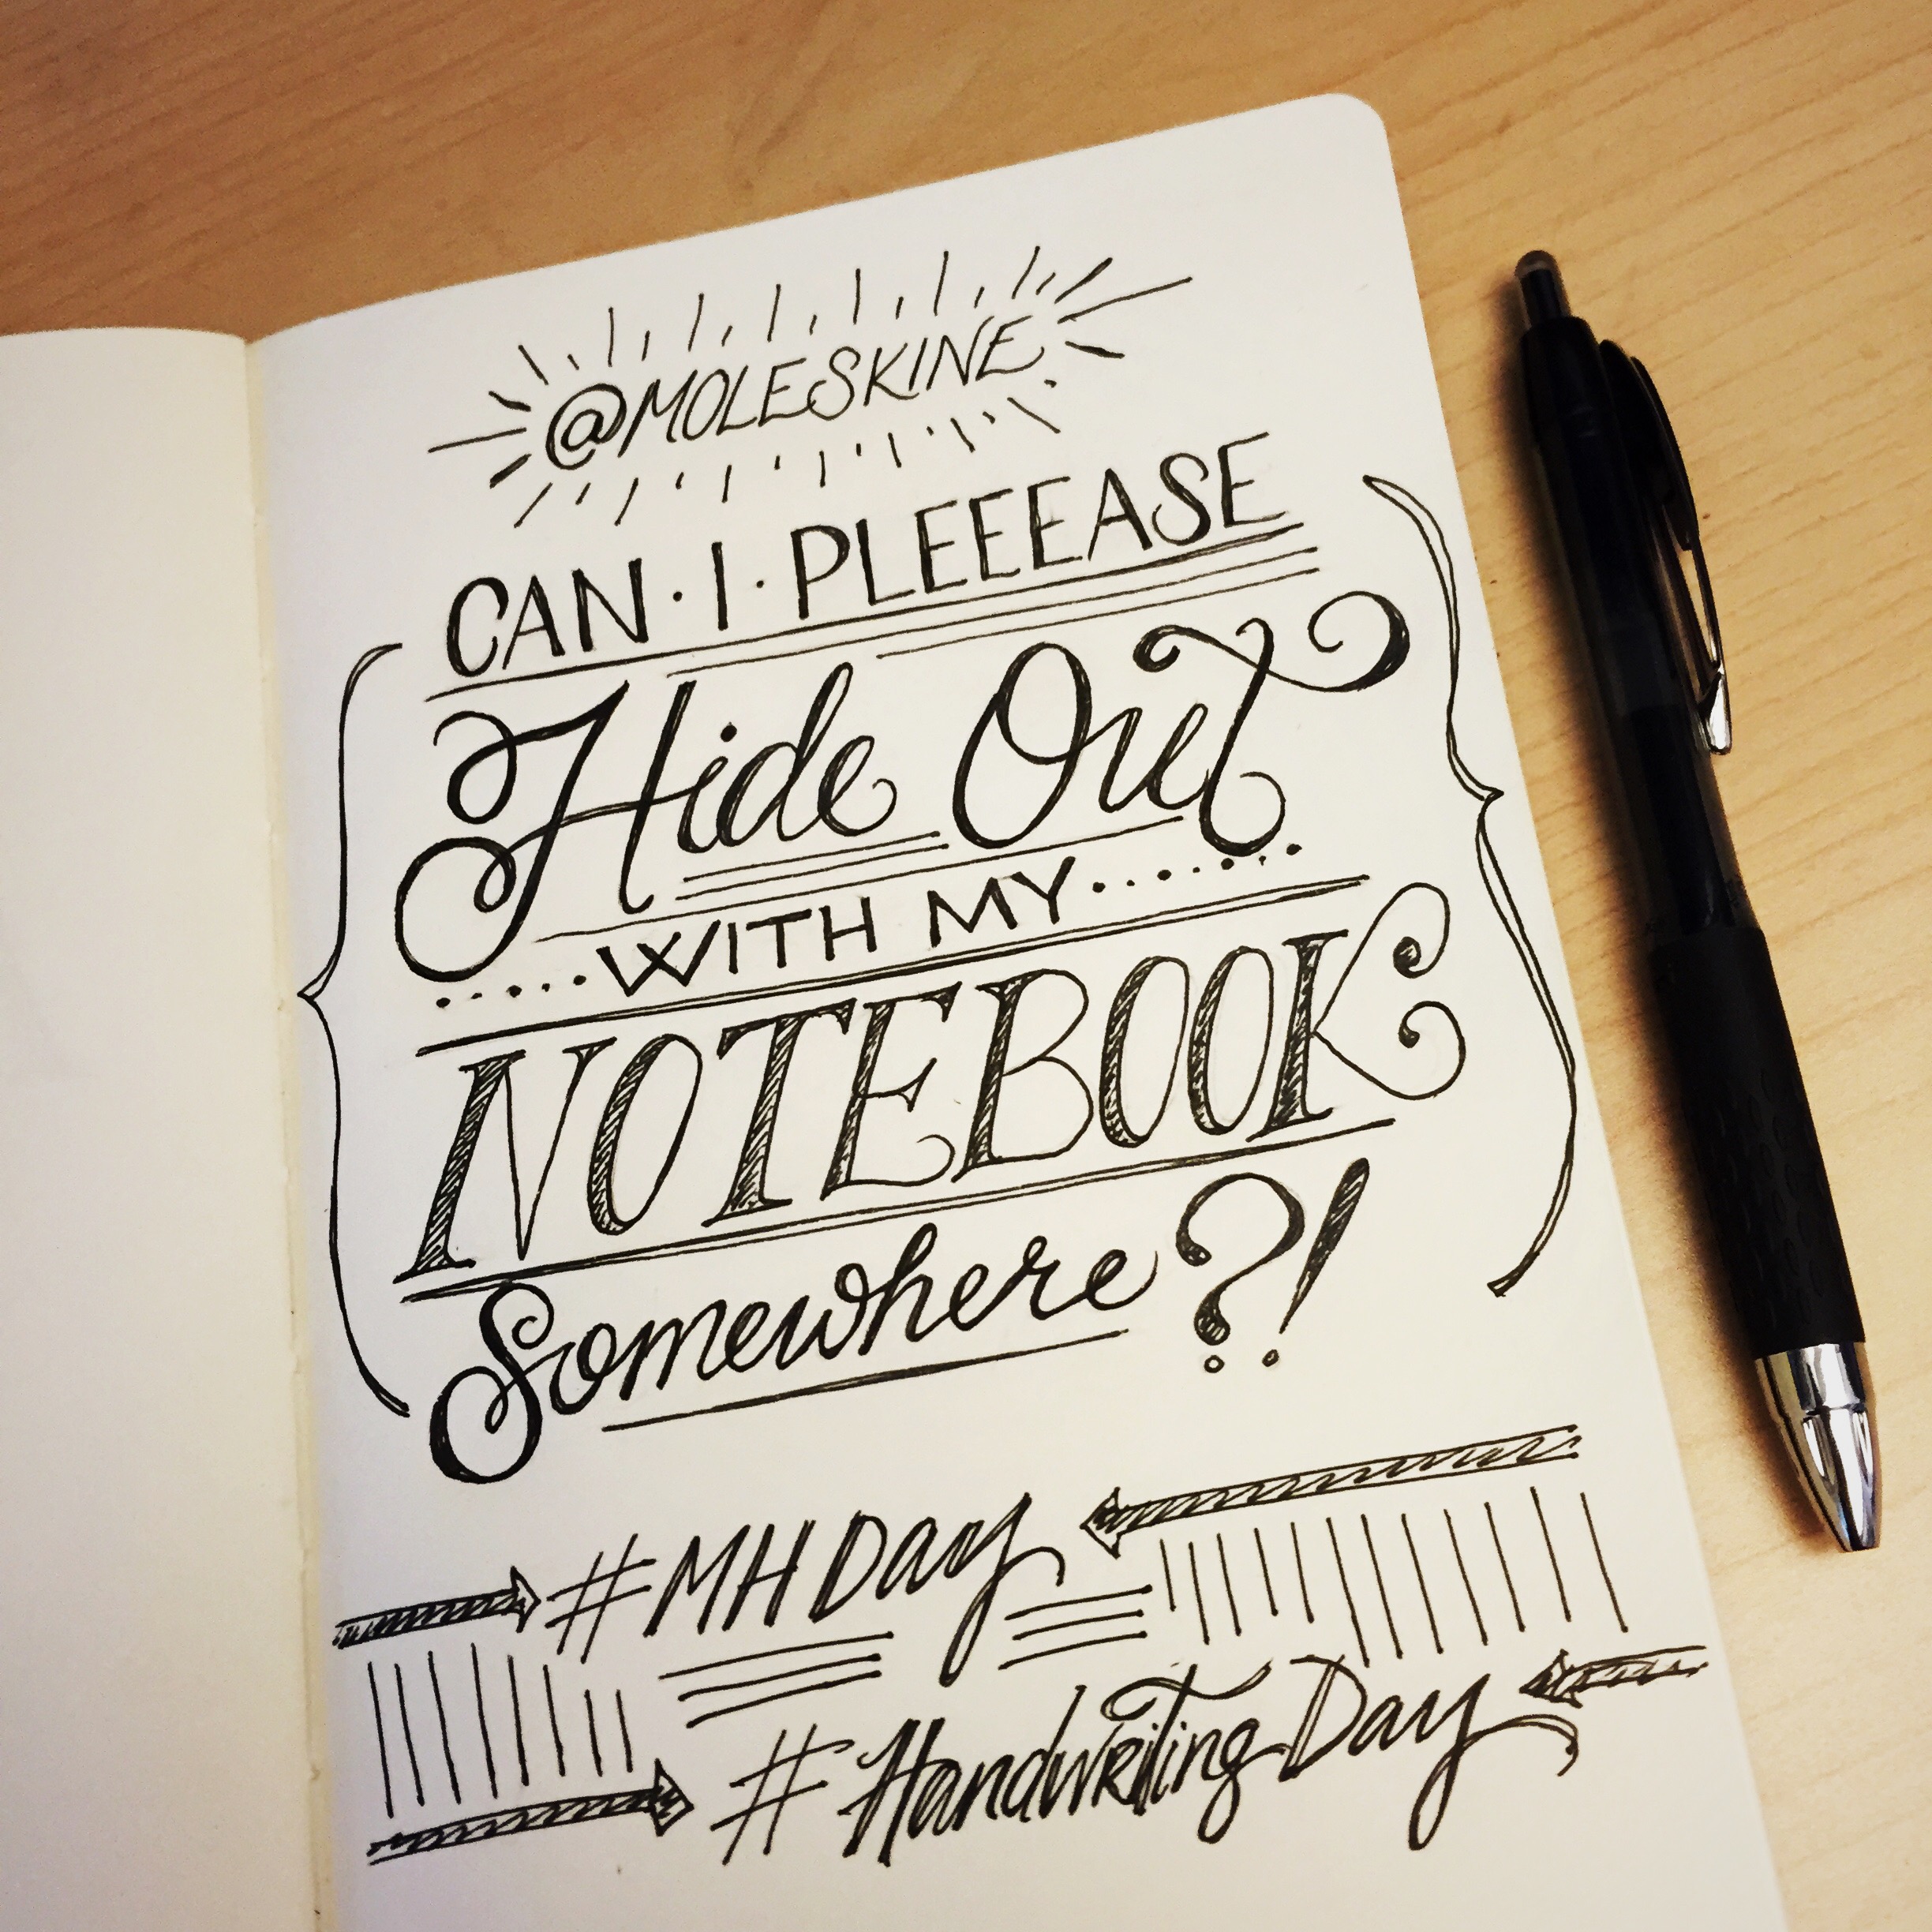 @MOLESKINE
CAN·I·PLEEEASE
Hide Out
WITH MY
NOTEBOOK
Somewhere?!
#MHDay
#HandwritingDay